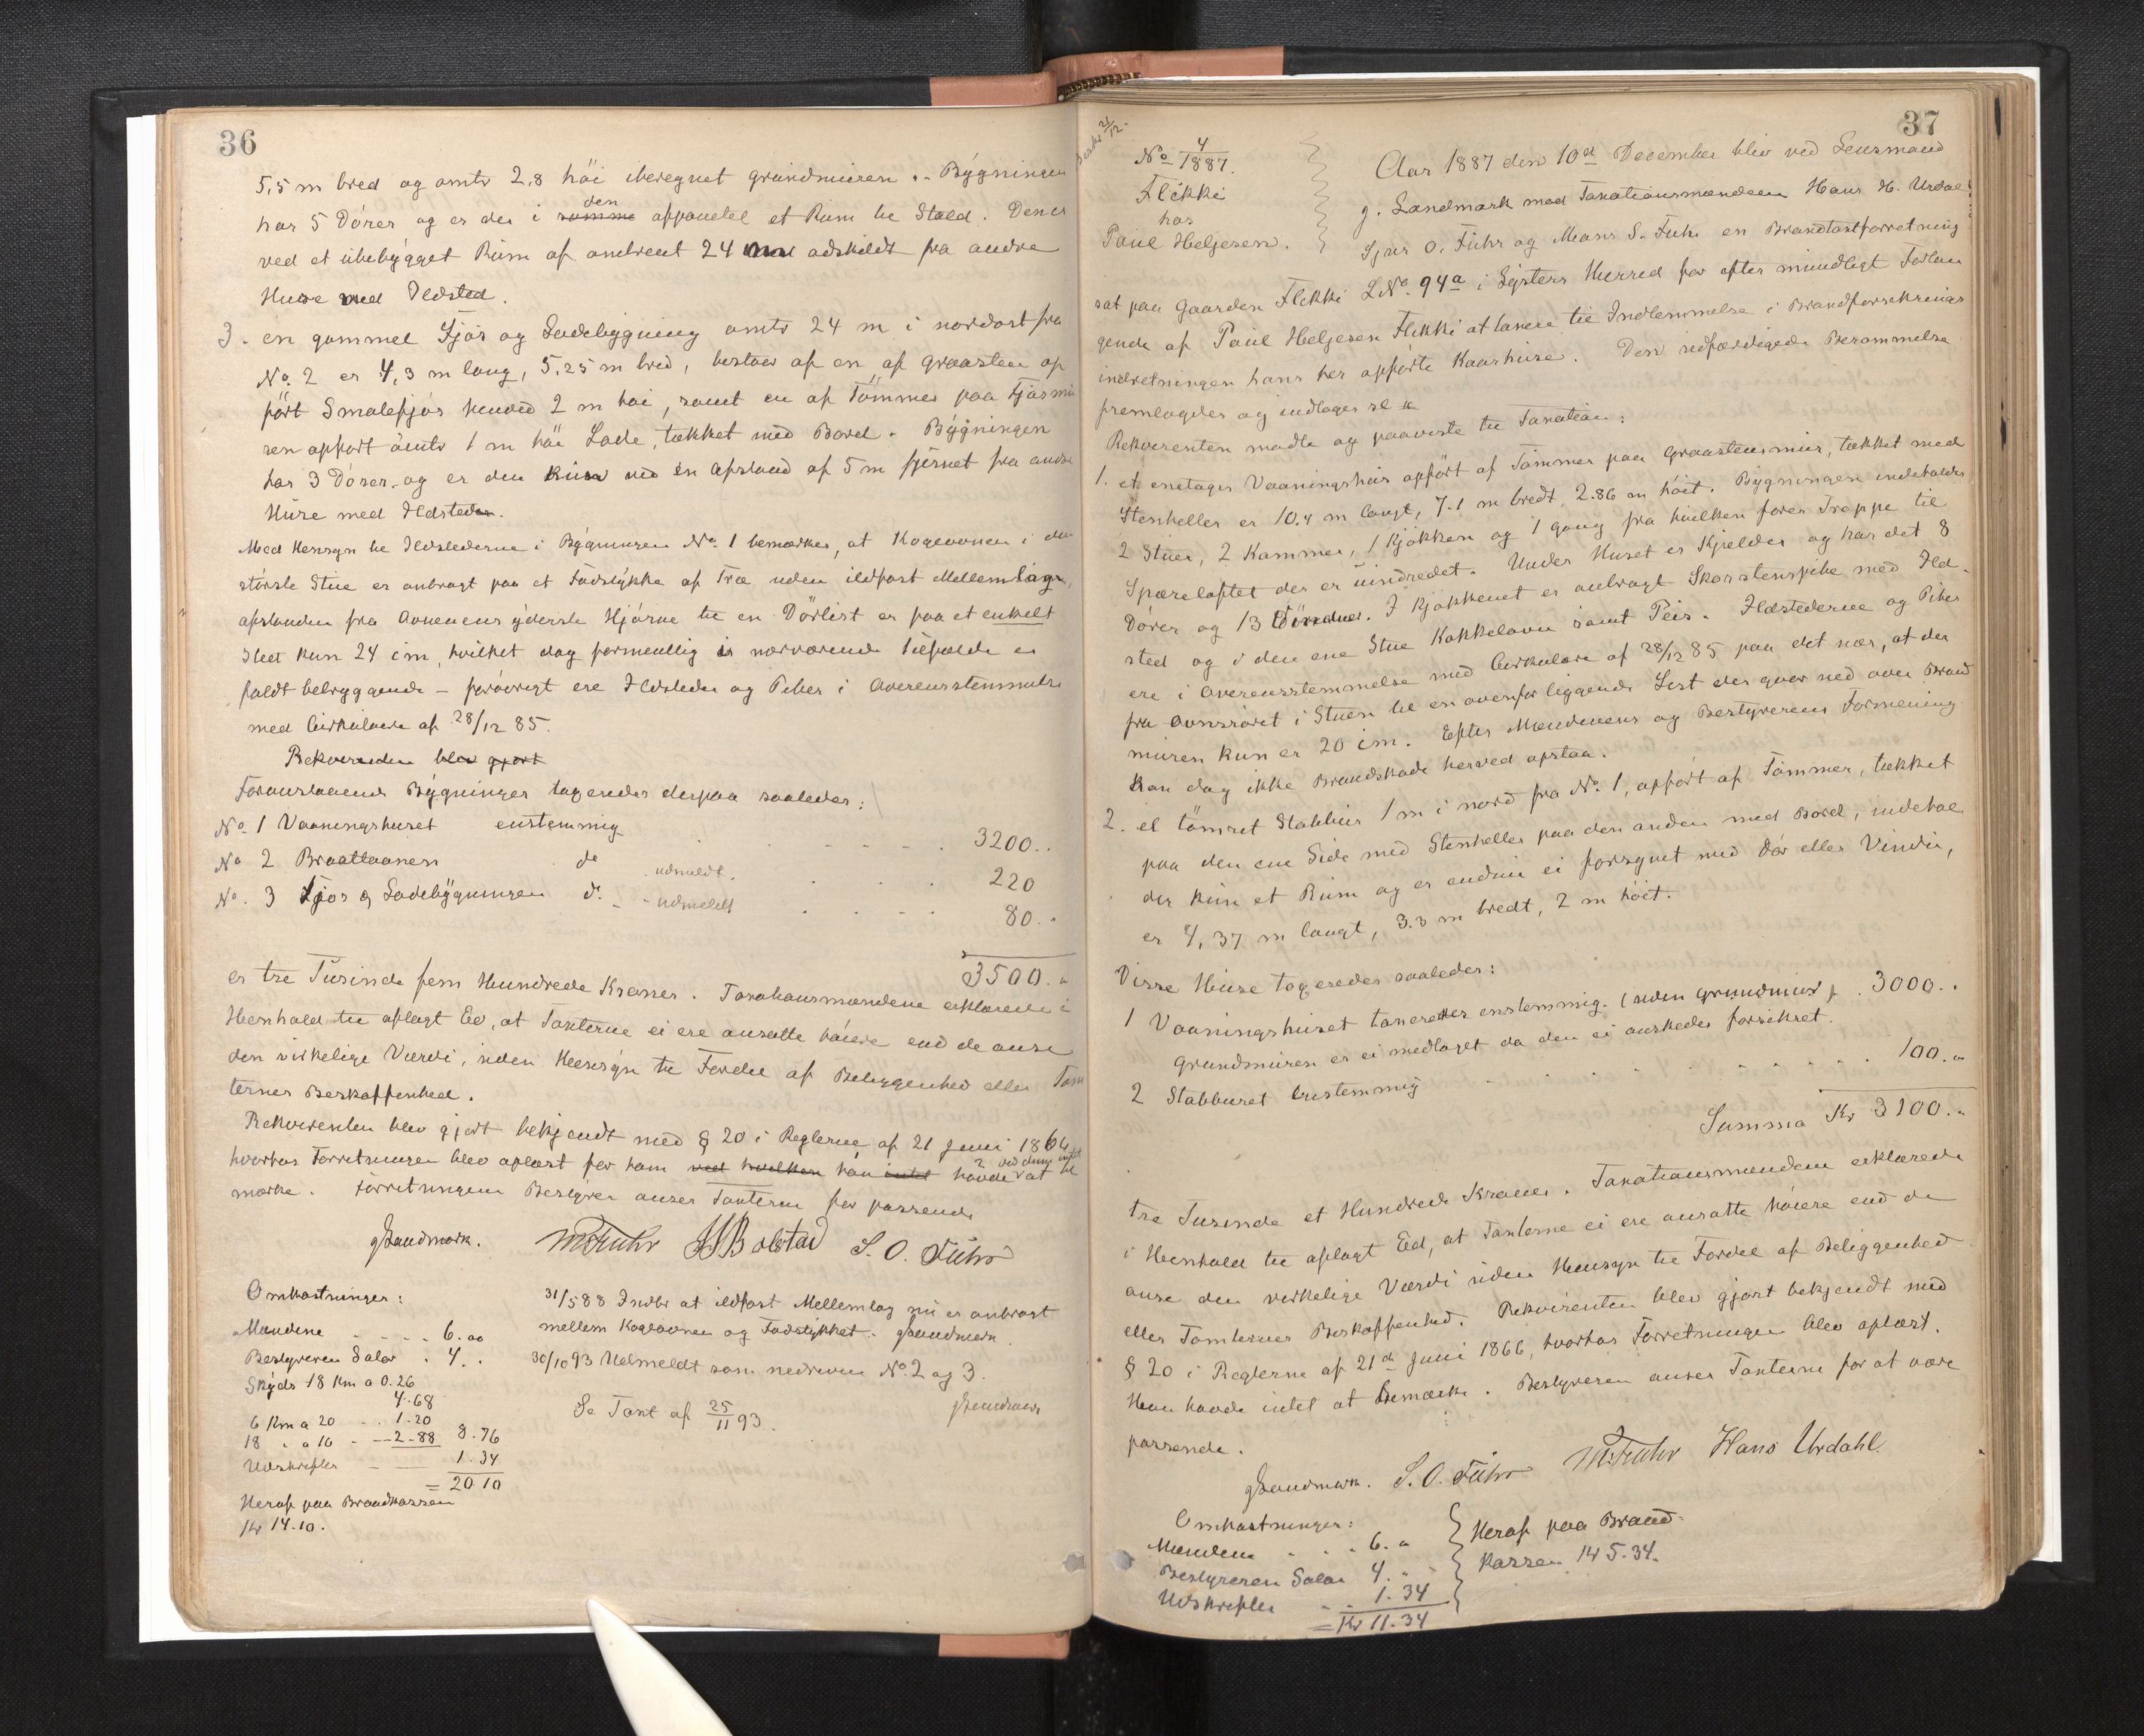 36
5,5 m bred og omtr 2,8 höi iberegnet grundmuren .. Bygningen
har 5 Dörer og er der i samme den afpanelet et Rum til Stald. Den er
ved et ubebygget Rum af omtrent 24 m adskildt fra andre
Huse med Ildsted.
3. en gammel Fjös og Ladebygning omtr 24 m i nordost fra
No. 2 er 4,3 m lang, 5,25 m bred, bestaar af en af Graasten op
fört Smalefjös henved 2 m höi, samt en af Tömmer paa Fjösmu
ren opfört omtr 1 m höi Lade, tækket med Bord. Bygningen
har 3 Dörer og er den kun ved en Afstand af 5 m fjernet fra andre
Huse med Ildsteder.
Med Hensyn til Ildstederne i Bygningen No. 1 bemærkes, at Kogeovnen i den
störste Stue er anbragt paa et Fodstykke af Træ uden ildfast Mellemlag,
afstanden fra Ovnenens yderste Hjörne til en Dörlist er paa et enkelt
Sted kun 24 cm, hvilket dog formentlig i nærværende Tilfælde er
fuldt betryggende – forövrigt ere Ildsteder og Piber i Overensstemmelse
med Cirkulære af 28/12 85.
Rekvirenten blev gjort
Foranstaaende Bygninger taxeredes derpaa saaledes:
No. 1 Vaaningshuset enstemmig 3200..
No 2 Braatlaanen do udmeldt. 220
No. 3 Fjös og Ladebygningen do. - udmeldt 80..
3500.„
er tre Tusinde fem Hundrede Kroner. Taxationsmændene erklærede i
Henhold til aflagt Ed, at Taxterne ei ere ansatte höiere end de anse
den virkelige Værdi, uden Hensyn til Fordel af Beliggenhed eller Tom
ternes Beskaffenhed.
Rekvirenten blev gjort bekjendt med § 20 i Reglerne af 21 Juni 1866
hvorhos Forretningen blev oplæst for ham ved hvilken han intet havde ved denne intet at be
mærke. Forretningens Bestyrer anser Taxterne for passende
GLandmark. MSFuhr HJBolstad S. O. Fuhr
Omkostninger:
Mændene - - - - 6.00
Bestyreren Salær . 4. .
Skyds 18 Km a 0.26
4.68
6 Km a 20 - . 1.20
18 „ a 16 - - 2.88 8.76
Udskrifter - — 1.34
= 20.10
Heraf paa Brandkassen
Kr 14.10.
31/5 88 Indbr at ildfast Mellemlag nu er anbragt
mellem Kogeovnen og Fodstykket. GLandmark
30/10 93 Udmeldt som nedreven No 2 og 3.
GLandmark
Se Taxt af 25/11 93.
37
21/12.
No 4/1887.
Flekke
hos
Paul Heljesen.
Aar 1887 den 10de December blev ved Lensmand
g. Landmark med Taxationsmændene Hans H. Urdal
Sjur O. Fuhr og Mons S. Fuhr en Brandtaxtforretning
sat paa Gaarden Flekke LNo. 94a i Lysters Herred for efter mundtligt Forlan
gende af Paul Heljesen Flekke at taxere til Indlemmelse i Brandforsikrings
indretningen hans her opförte Kaarhuse. Den udfærdigede Berammelse
fremlagdes og indtages sl
Rekvirenten mödte og paaviste til Taxation:
1. et enetages Vaaningshus opfört af Tömmer paa Graastensmur, tækket med
Stenheller er 10.4 m langt, 7.1 m bredt, 2.86 m höit. Bygningen indeholder
2 Stuer, 2 Kammer, 1 Kjökken og 1 gang fra hvilken förer Trappe til
Spæreloftet der er uindredet. Under Huset er Kjelder og har det 8
Dörer og 13 Vinduer. I Kjökkenet er anbragt Skorstenspibe med Ild-
sted og i den ene Stue Kakkelovn samt Peis. Ildstederne og Piber
ere i Overensstemmelse med Cirkulære af 28/12 85 paa det nær, at der
fra Ovnsröret i Stuen til en ovenfor liggende List der gaar ned over Brand
muren kun er 20 cm. Efter Mændenes og Bestyrerens Formening
kan dog ikke Brandskade herved opstaa.
2. et tömret Stabbur 1 m i nord fra No. 1, opfört af Tömmer, tækket
paa den ene Side med Stenheller paa den anden med Bord, indehol
der kun et Rum og er endnu ei forsynet med Dör eller Vindu,
er 4,37 m langt, 3.3 m bredt, 2 m höit.
Disse Huse taxeredes saaledes:
1 Vaaningshuset taxeredes enstemmig. (uden Grundmur) . 3000..
Grundmuren er ei medtaget da den ei önskedes forsikret.
2 Stabburet Enstemmig 100.„
Summa Kr 3100.„
tre Tusinde et Hundrede Kroner. Taxationsmændene erklærede
i Henhold til aflagt Ed, at Taxterne ei ere ansatte höiere end de
anse den virkelige Værdi uden Hensyn til Fordel af Beliggenhed
eller Tomternes Beskaffenhed. Rekvirenten blev gjort bekjendt med
§ 20 i Reglerne af 21de Juni 1866, hvorhos Forretningen blev oplæst.
Han havde intet at bemærke. Bestyreren anser Taxterne for at være
passende.
GLandmark. S. O. Fuhr MSFuhr Hans Urdahl
Omkostninger:
Mændene - . . - 6. „
Bestyreren Salær 4. „
Udskrifter - - 1.34
= Kr 11.34
Heraf paa Brand-
kassen Kr 5.34.